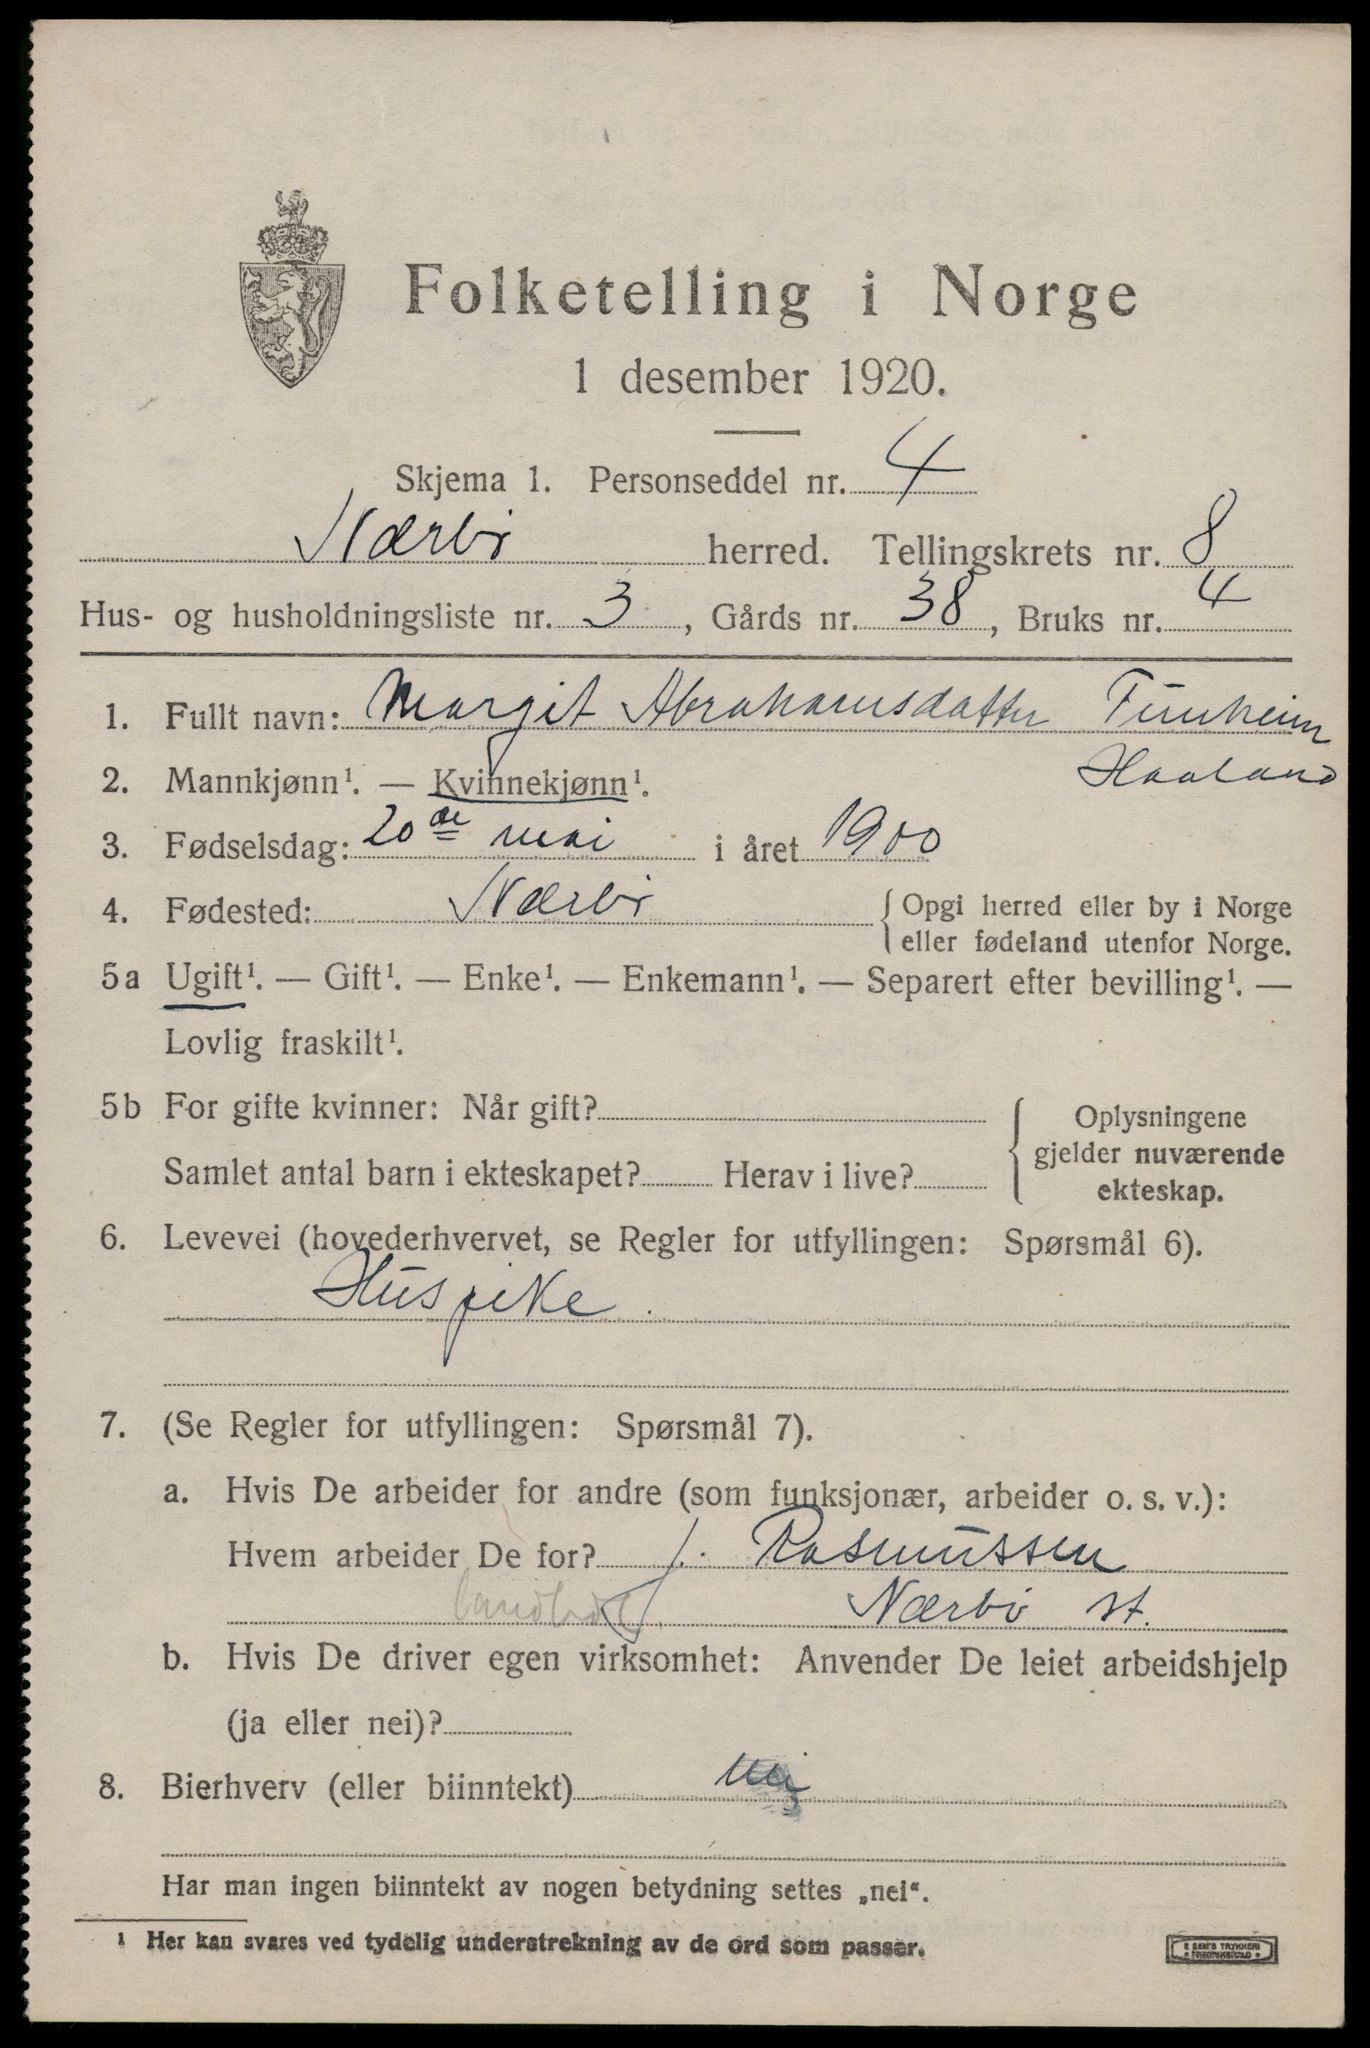 Folketelling i Norge
1 desember 1920.
Skjema 1. Personseddel nr. 4
Nærbø herred. Tellingskrets nr. 8
Hus- og husholdningsliste nr. 3, Gårds nr. 38, Bruks nr. 4
1. Fullt navn: Margit Abrahamsdatter Tunheim
Haaland
2. Mannkjønn¹. — Kvinnekjønn¹.
3. Fødselsdag: 20de mai i året 1900
4. Fødested: Nærbø { Opgi herred eller by i Norge
eller fødeland utenfor Norge.
5a Ugift¹. — Gift¹. — Enke¹. — Enkemann¹. — Separert efter bevilling¹. —
Lovlig fraskilt¹.
5b For gifte kvinner: Når gift?
Samlet antal barn i ekteskapet? Herav i live?
{ Oplysningene
gjelder nuværende
ekteskap.
6. Levevei (hovederhvervet, se Regler for utfyllingen: Spørsmål 6).
Huspike.
7. (Se Regler for utfyllingen: Spørsmål 7).
a. Hvis De arbeider for andre (som funksjonær, arbeider o. s. v.):
Hvem arbeider De for? J. Rasmussen
Nærbø st.
b. Hvis De driver egen virksomhet: Anvender De leiet arbeidshjelp
(ja eller nei)?
8. Bierhverv (eller biinntekt) nei
Har man ingen biinntekt av nogen betydning settes „nei“.
¹ Her kan svares ved tydelig understrekning av de ord som passer.
E SEM'S TRYKKERI
FREDRIKSHALD